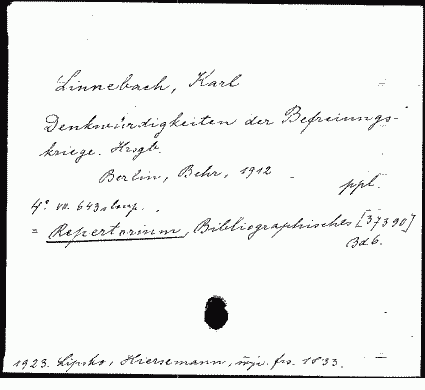 Linnebach, Karl
Denkwürdigkeiten der Befreiungs-
kriege. Hrsgb.
Berlin, Behr, 1912
ppł.
4° VII. 643
= Repertorium, Bibliographisches [37390]
Bd 6.
1923. Lipsko, Hiersemann, frs. 1833.